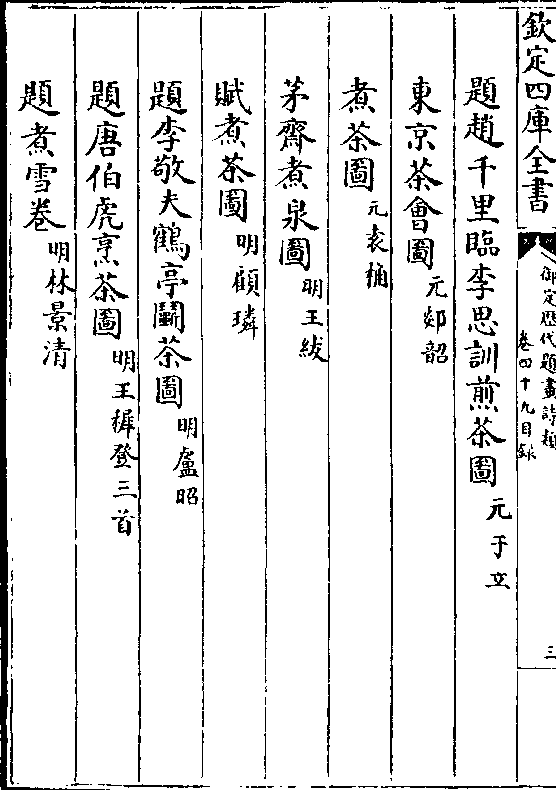 欽定四庫全書
御定歴代題畫詩類
卷四十九目録
三
題趙千里臨李思訓煎茶圖 元于立
東京茶會圖 元郯韶
煮茶圖 元袁桷
茅齋煮泉圖 明王紱
賦煮茶圖 明顧璘
題李敬夫鶴亭鬭茶圖 明盧昭
題唐伯虎烹茶圖 明王穉登三首
題煮雪卷 明林景清